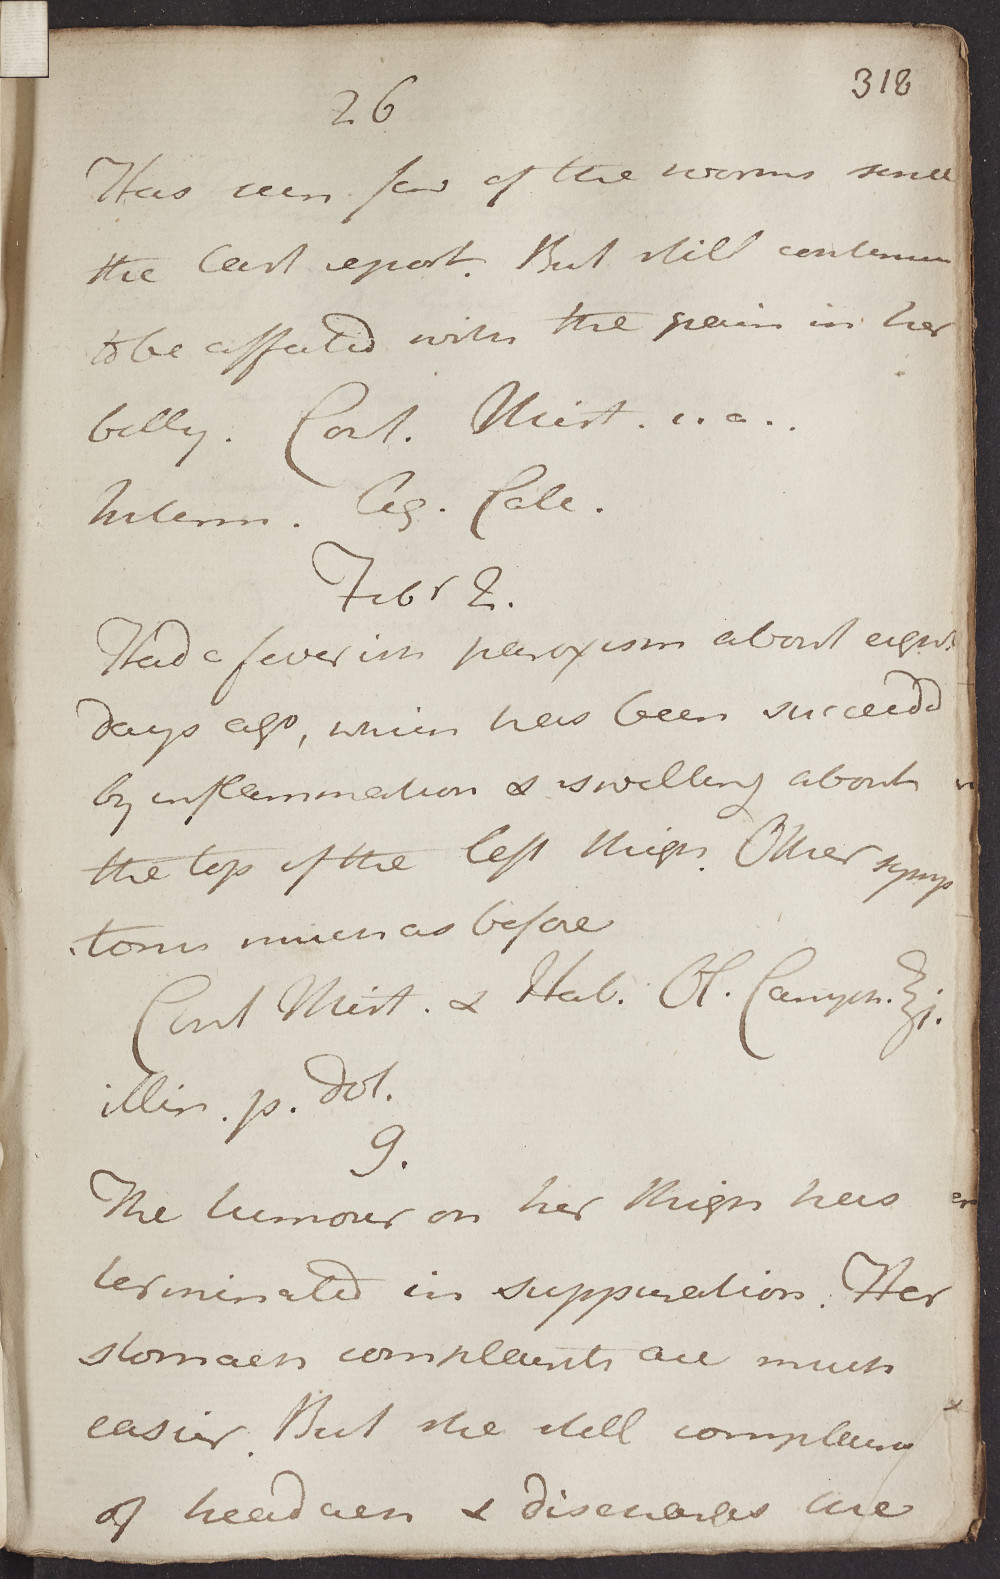 318
26
Has seen few of the worms since
the last report. But still continues
to be affected with the pain in her
belly. Cont. Mist. u. a..
Interm. Aq. Calc.
Febr 2.
Had a feverish paroxysm about eight
days ago, which has been succeedd
by inflammation & swelling about
the top of the left thigh. Other symp
toms much as before
Cont Mist. & Hab. Ol. Camph. ℥j.
illin. p. dol.
9.
The tumour on her thigh has
terminated in suppuration. Her
stomach complaints are much
easier. But she still complains
of headach & discharges the